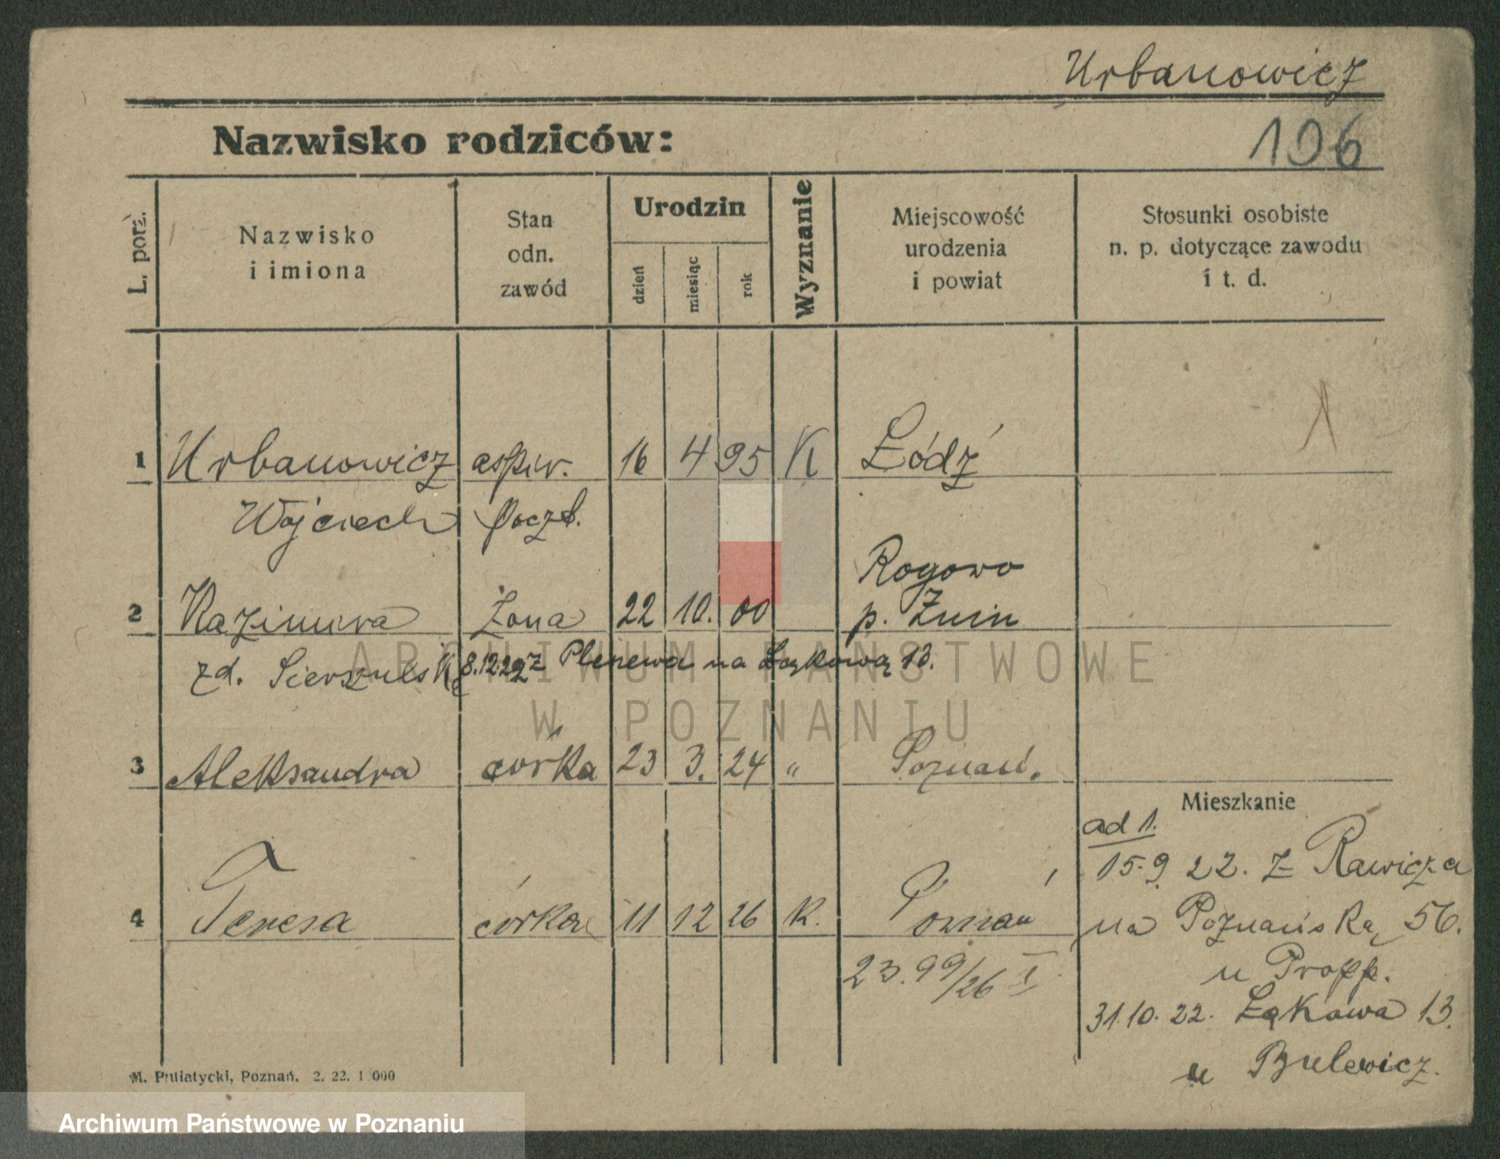 Urbanowicz
Nazwisko rodziców:
196
L. porz.
Nazwisko
i imiona
Stan
odn.
zawód
Urodzin
dzień
miesiąc
rok
Wyznanie
Miejscowość
urodzenia
i powiat
Stosunki osobiste
n. p. dotyczące zawodu
i t. d.
1 Urbanowicz aspir. 16 4 95 K Łódź
Wojciech poczt.
Rogowo
2 Kazimira żona 22 10. 00 p. Żnin
zd. Sierszulską 8.12 22 z Pleszewa na Łąkową 13.
ARCHIWUM PAŃSTWOWE
W POZNANIU
3 Aleksandra córka 23 3. 24 " Poznań.
Mieszkanie
ad 1.
15.9 22. z Rawicza
4 Teresa córka 11 12 26 K. Poznań
na Poznańską 56.
u Propp.
23.99/26 I
31.10. 22. Łąkowa 13.
u Bulewicz.
M. Putiatycki, Poznań. 2. 22. 1 000
Archiwum Państwowe w Poznaniu